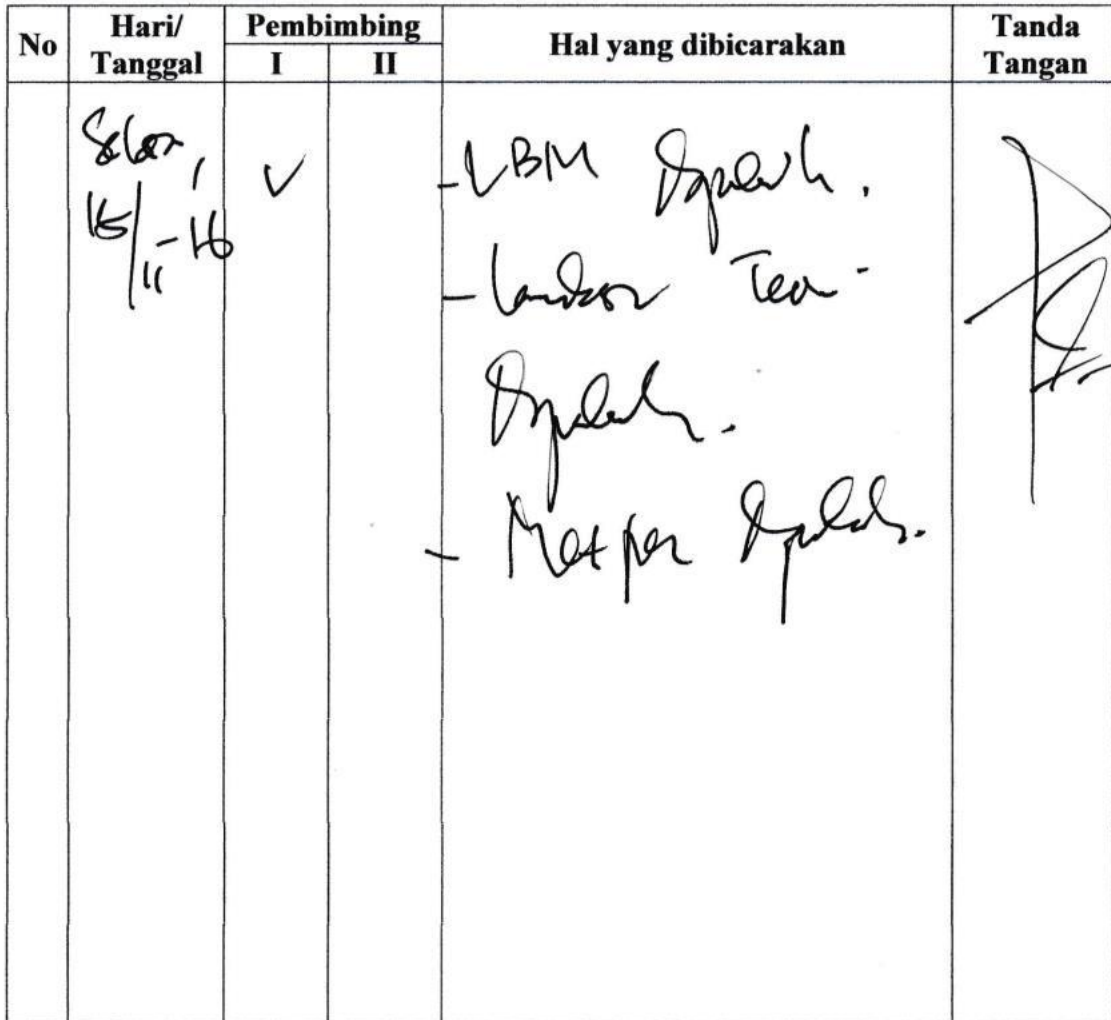 No Hari/ Tanggal Pembimbing I II Hal yang dibicarakan Tanda Tangan
Selasa,
15/11-16 V
- LBM Diperbaiki.
- Landasan Teori
Diperbaiki.
- Metpen Diperbaiki.